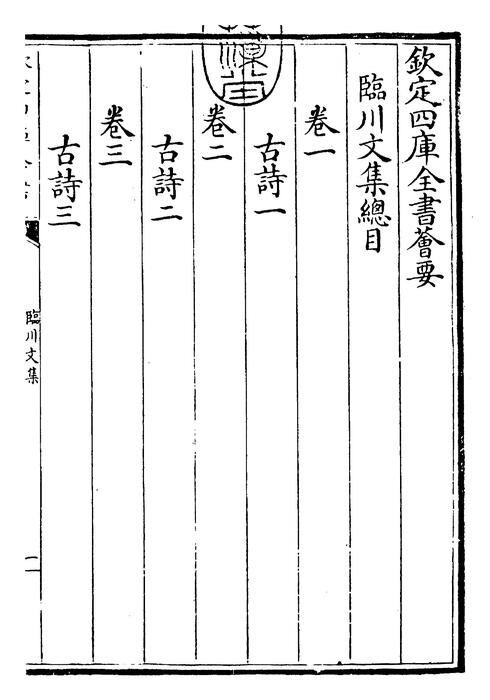 欽定四庫全書薈要
臨川文集總目
卷一
古詩一
卷二
古詩二
卷三
古詩三
臨川文集
一